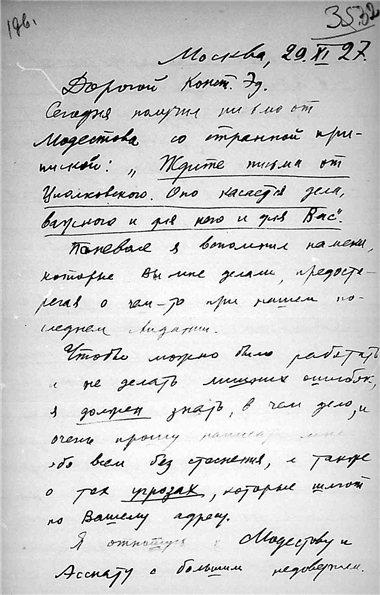 196.
3532
Москва, 29.XI 27.
Дорогой Конст. Эд.
Сегодня получил письмо от
Модестова со странной при-
пиской: „Ждите письма от
Циолковского. Оно касается дела,
важного и для него и для Вас".
Поневоле я вспомнил намеки,
которые Вы мне делали, предосте-
регая о чем-то при нашем по-
следнем свидании.
Чтобы можно было работать
и не делать лишних ошибок,
я должен знать, в чем дело, и
очень прошу написать мне
обо всем без стеснения, а также
о тех угрозах, которые шлют
по Вашему адресу.
Я отношусь к Модестову и
с большим недоверием.